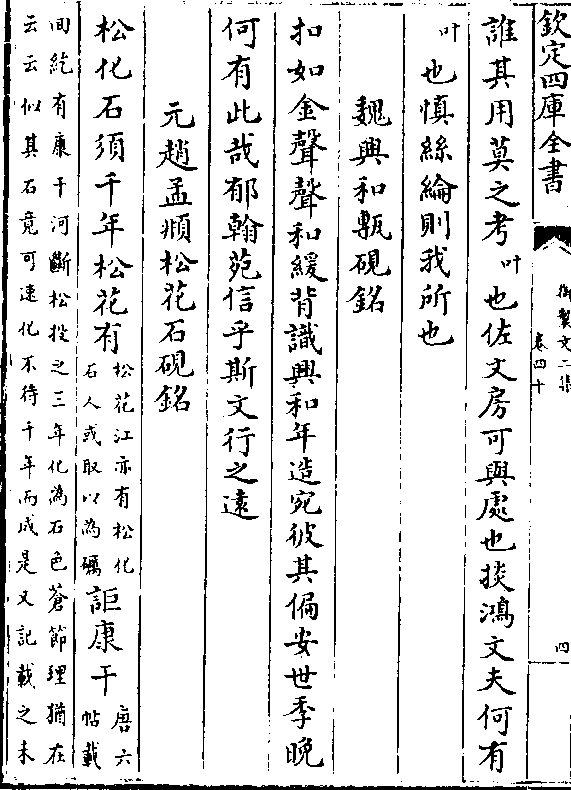 欽定四庫全書
御製文二集
卷四十
四
誰其用莫之考叶也佐文房可與處也掞鴻文夫何有
叶也慎絲綸則我所也
魏興和甎硯銘
扣如金聲聲和緩背識興和年造宛彼其偏安世季晚
何有此哉郁翰苑信乎斯文行之遠
元趙孟頫松花石硯銘
松化石須千年松花有松花江亦有松化石人或取以為礪詎康干唐六帖載
回紇有康干河斷松投之三年化為石色蒼節理猶在
云云似其石竟可速化不待千年而成是又記載之未